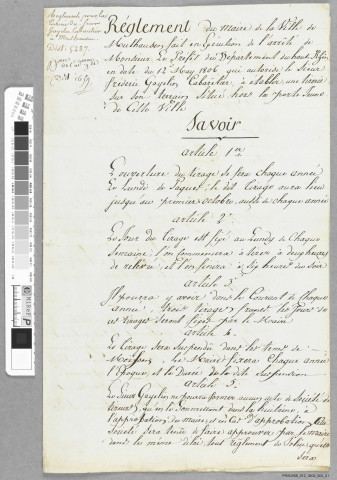 Réglement pour les
Mulhausen
Réglement du Maire de la Ville de
Mulhausen, fait en execution de l'arrêté de
Monsieur le Préfet du Département du haut Rhin,
en date du 12 May 1806 qui autorise le Sieur
fréderic Gayelin, Cabaretier, à établir une
sur son terrain Situé hors la porte Jeune
de Cette Ville
Savoir
article 1er
L'ouverture du tirage se fera chaque année
le Lundi de Paques; le dit tirage aura lieu
jusqu'au premier octobre, aussi de chaque année
article 2e
Le Jour du tirage est fixé au Lundi de Chaque
Semaine; l'on commencera à tirer à deux heures
de relevée et l'on finira à Six heures du Soir
article 3.
Il pourra y avoir dans le Courant de Chaque
année, trois tirages francs, les Jours de
ces tirages Seront fixés par le Maire
article 4.
Le tirage Sera Suspendu dans les tems de
Moisson, le Maire fixera Chaque année
l'Epoque et la Durée de la dite Suspension
article 5.
Le Sieur Gayelin ne pourra former aucune Société de
tireurs, qu'en la Soumettant dans la huitaine, à
l'approbation du maire; et en Cas d'approbation, cette
Société Sera tenue de faire approuver par le maire
dans le même délai tout réglement de Police qu'elle
Sera